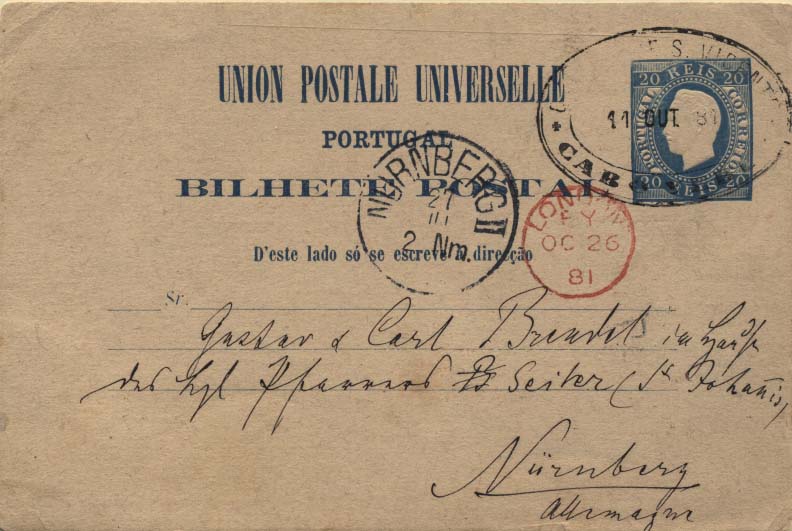 UNION POSTALE UNIVERSELLE
PORTUGAL
BILHETE POSTAL
D'este lado só se escreve a direcção
S. VICENTE
11 OUT 81
CABO
20 REIS 20
PORTUGAL
CORREIO
20 REIS 20
NÜRNBERG II
2 Nm.
LONDON
OC 26
81
Sr.
Gustav & Carl Brendel im Hause
des kgl Pfarrers Seiler (St Johannis)
Nürnberg
Allemagne